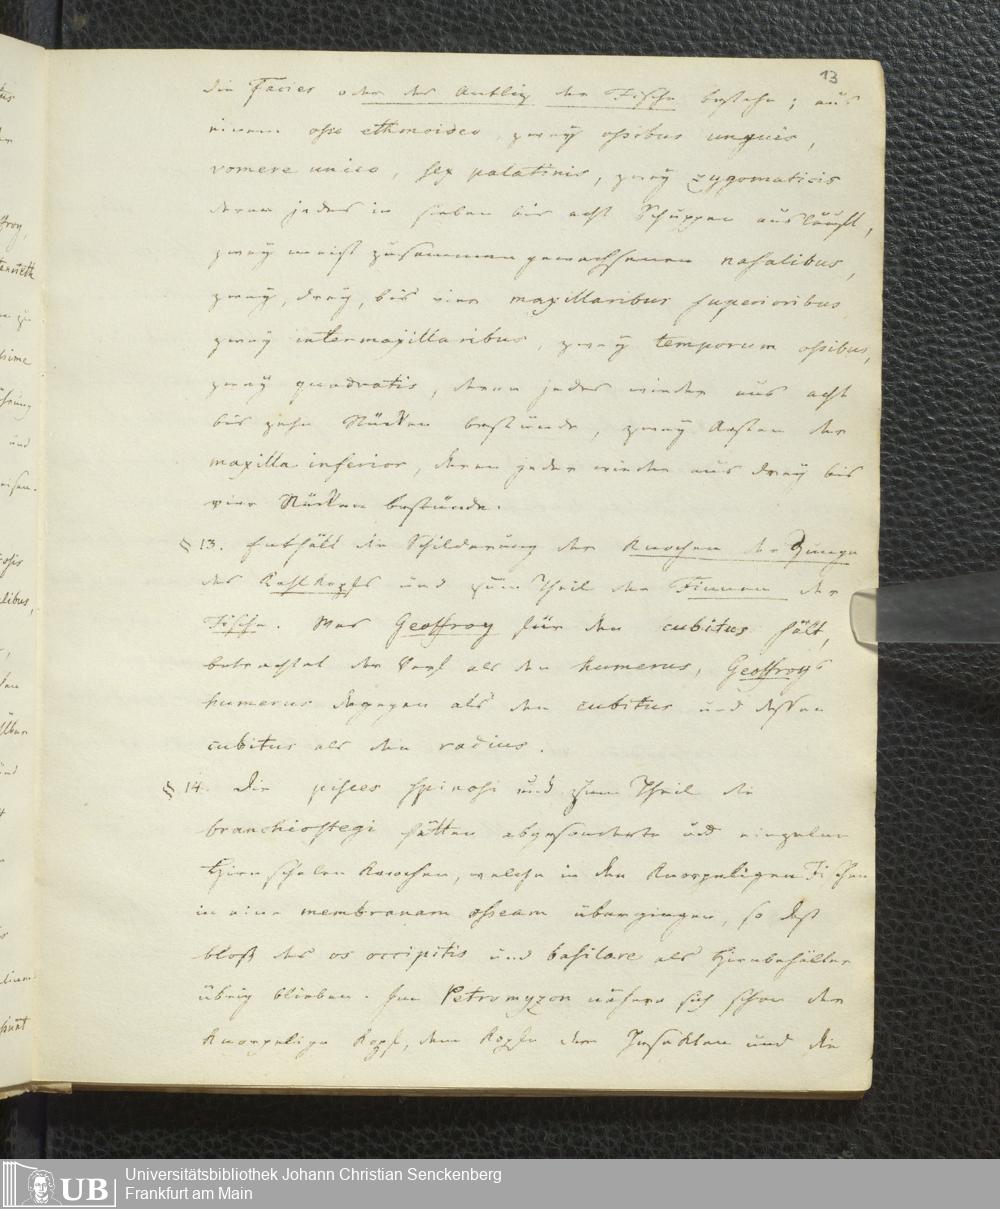 13
die Facies oder das Antlitz der Fische bestehe; aus
einem osse ethmoideo, zwey ossibus unguis,
vomere unico, sex palatinis, zwey zygomaticis
deren jedes in sieben bis acht Schuppen ausläuft,
zwey meist zusammengewachsenen nasalibus,
zwey, drey, bis vier maxillaribus superioribus
zwey intermaxillaribus, zwey temporum ossibus,
zwey quadratis, deren jedes wieder aus acht
bis zehn Stücken bestünde, zwey Aesten der
maxilla inferior, deren jeder wieder aus drey bis
vier Stücken bestünde.
§ 13. Enthält die Schilderung der Knochen der Zunge
des Kehlkopfs und zum Theil der Finnen der
Fische. Was Geoffroy für den cubitus hält,
betrachtet der Verf als den humerus, Geoffroys
humerus dagegen als den cubitus und dessen
cubitus als den radius.
§ 14. Die pisces spinosi und zum Theil die
branchiostegi hätten abgesonderte und einzelne
Hirnschalen Knochen, welche in den knorpeligen Fischen
in eine membranam osseam übergiengen, so daß
bloß das os occipitis und basilare als Hirnbehälter
übrig blieben. Im Petromyzon nähere sich schon der
knorpelige Kopf, dem Kopfe der Insekten und die
UB
Universitätsbibliothek Johann Christian Senckenberg
Frankfurt am Main